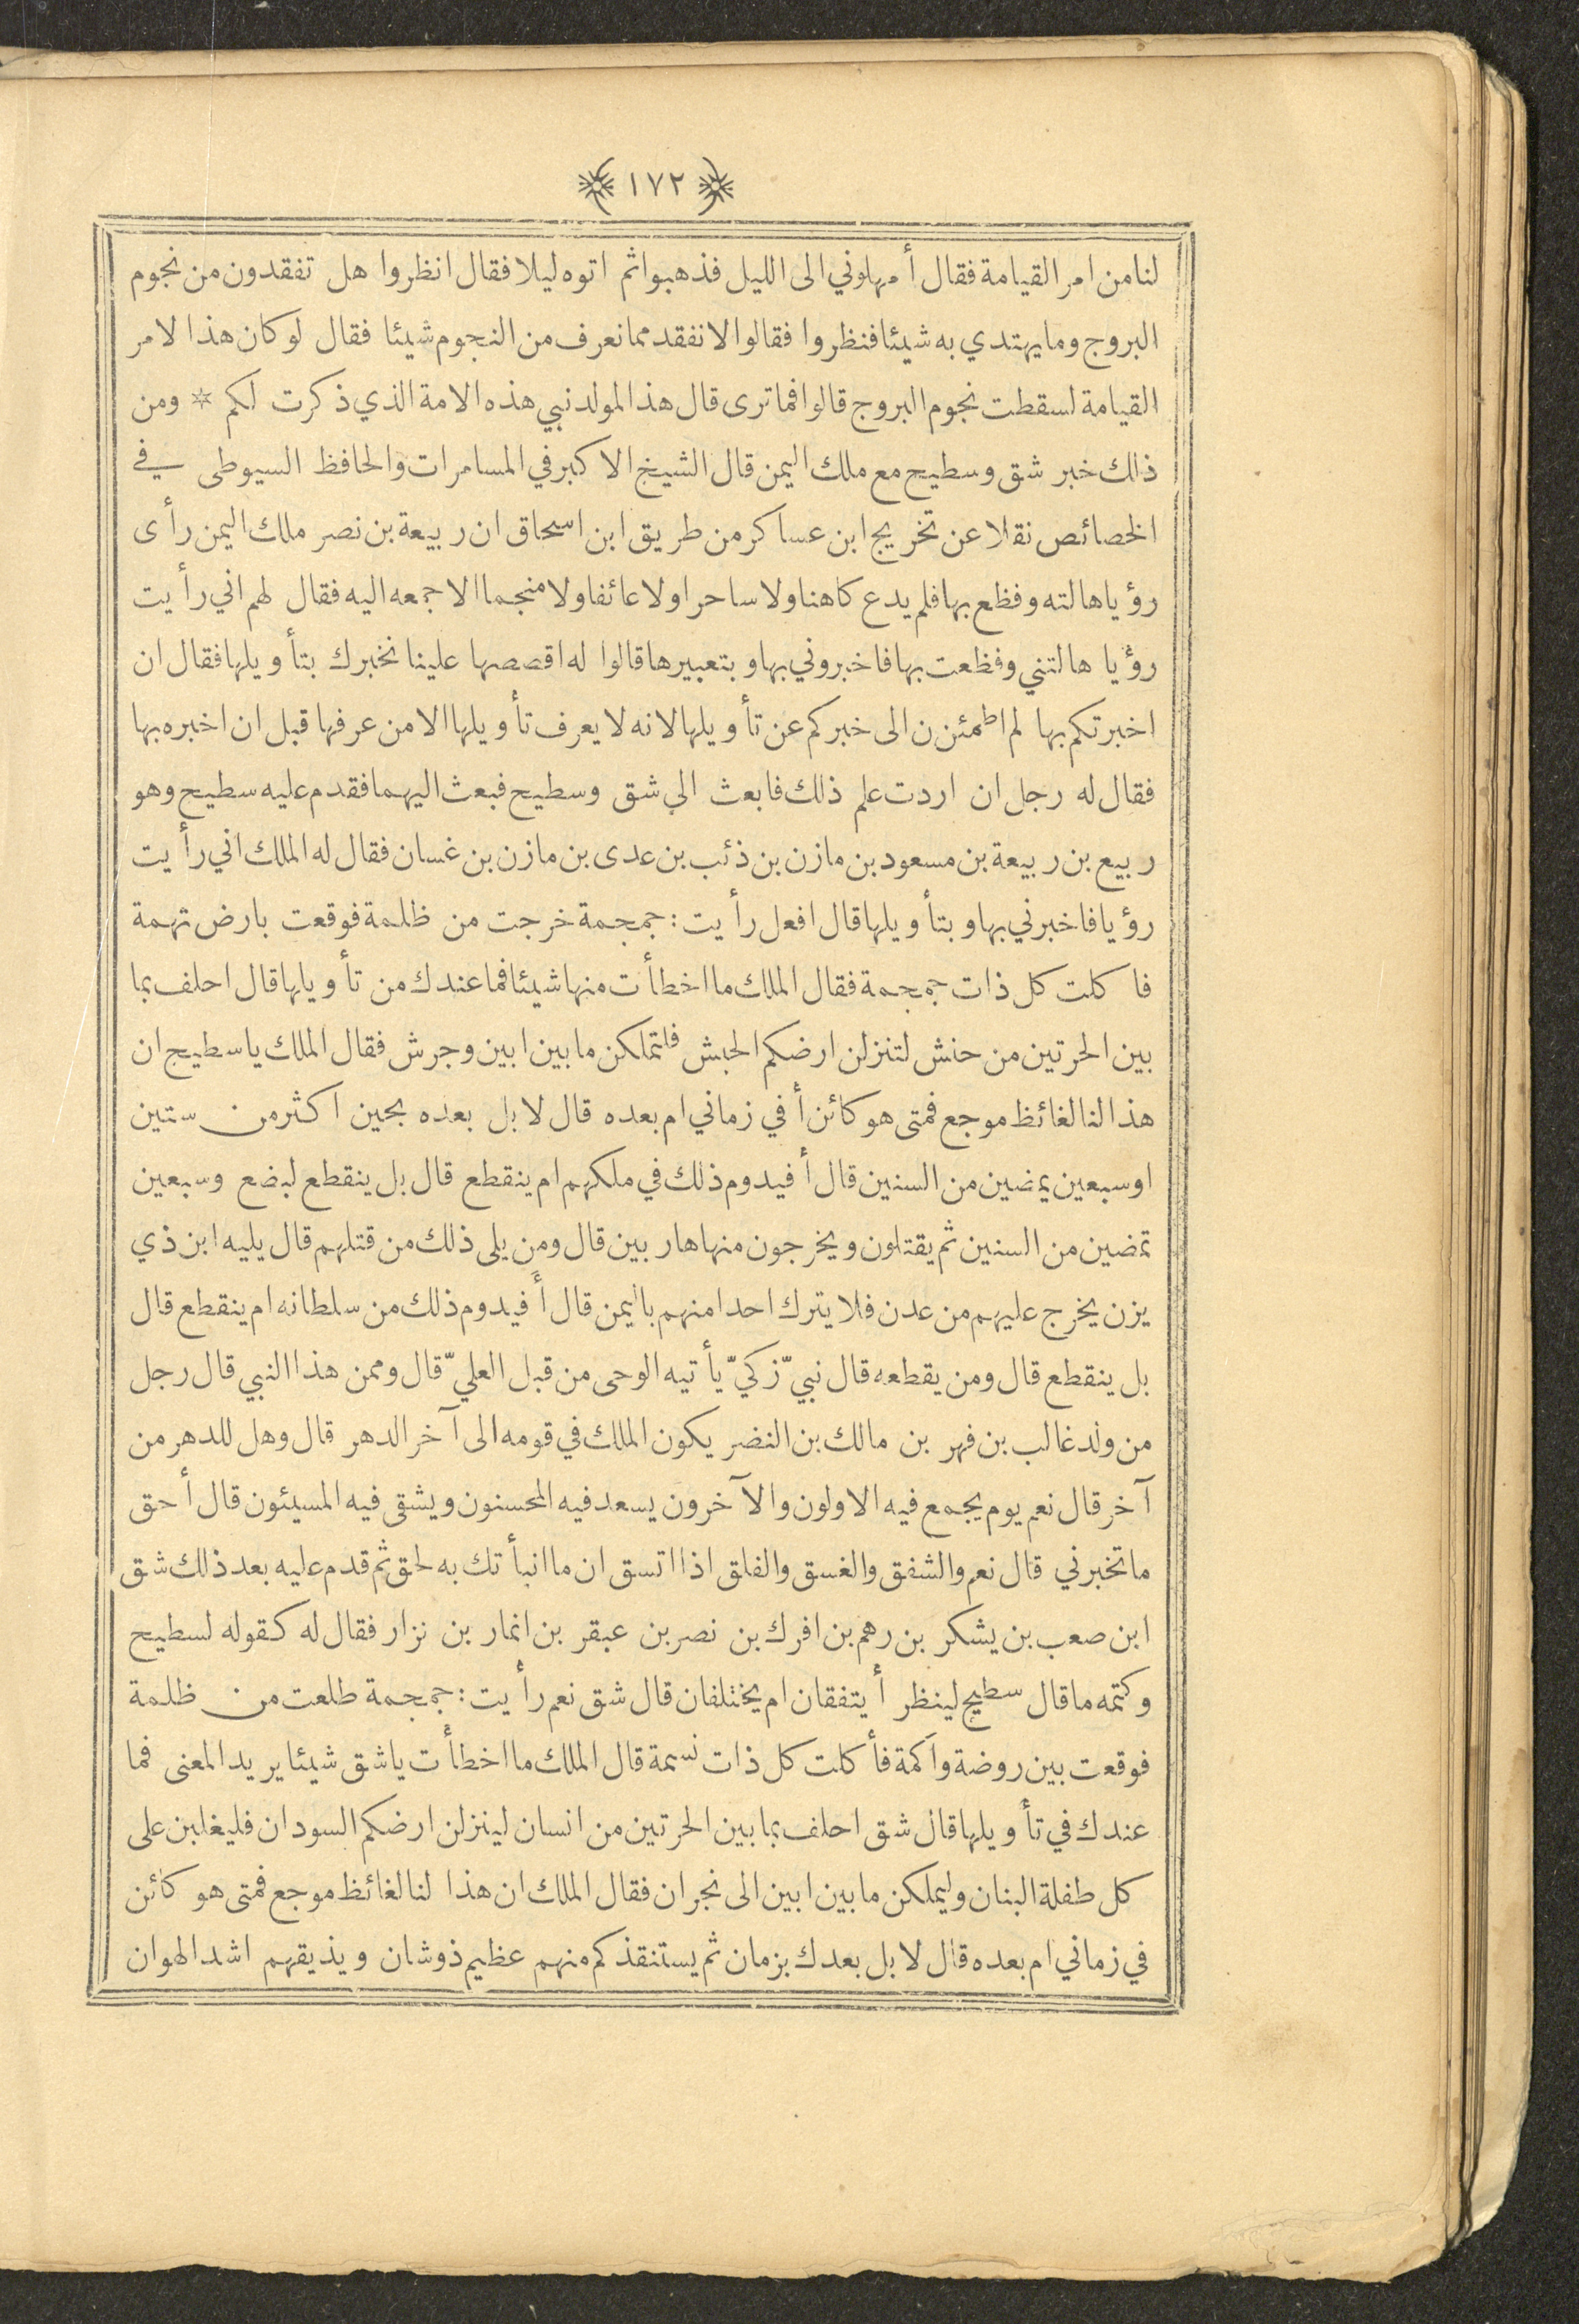 ﴿ ١٧٢ ﴾
لنا من امر القيامة فقال أمهلوني الى الليل فذهبوا ثم اتوه ليلا فقال انظروا هل تفقدون من نجوم
البروج وما يهتدي به شيئا فنظروا فقالوا لا نفقد مما نعرف من النجوم شيئا فقال لو كان هذا لامر
القيامة لسقطت نجوم البروج قالوا فما ترى قال هذا المولد نبي هذه الامة الذي ذكرت لكم * ومن
ذلك خبر شق وسطيح مع ملك اليمن قال الشيخ الاكبر في المسامرات والحافظ السيوطى في
الخصائص نقلا عن تخريج ابن عساكر من طريق ابن اسحاق ان ربيعة بن نصر ملك اليمن رأى
رؤيا هالته وفظع بها فلم يدع كاهنا ولا ساحرا ولا عائفا ولا منجما الا جمعه اليه فقال لهم اني رأيت
رؤيا هالتني وفظعت بها فاخبروني بها وبتعبيرها قالوا له اقصصها علينا نخبرك بتأويلها فقال ان
اخبرتكم بها لم اطمئن ن الى خبركم عن تأويلها لانه لا يعرف تأويلها الا من عرفها قبل ان اخبره بها
فقال له رجل ان اردت علم ذلك فابعث الى شق وسطيح فبعث اليهما فقدم عليه سطيح وهو
ربيع بن ربيعة بن مسعود بن مازن بن ذئب بن عدى بن مازن بن غسان فقال له الملك اني رأيت
رؤيا فاخبرني بها وبتأويلها قال افعل رأيت : جمجمة خرجت من ظلمة فوقعت بارض تهمة
فاكلت كل ذات جمجمة فقال الملك ما اخطأت منها شيئا فما عندك من تأويلها قال احلف بما
بين الحرتين من حنش لتنزلن ارضكم الحبش فلتملكن ما بين ابين وجرش فقال الملك يا سطيح ان
هذا لنا لغائظ موجع فمتى هو كائن أفي زماني ام بعده قال لا بل بعده بحين اكثر من ستين
او سبعين يمضين من السنين قال أفيدوم ذلك في ملكهم ام ينقطع قال بل ينقطع لبضع وسبعين
تمضين من السنين ثم يقتلون ويخرجون منها هاربين قال ومن يلى ذلك من قتلهم قال يليه ابن ذي
يزن يخرج عليهم من عدن فلا يترك احدا منهم باليمن قال أفيدوم ذلك من سلطانه ام ينقطع قال
بل ينقطع قال ومن يقطعه قال نبيّ زكيّ يأتيه الوحى من قبل العليّ قال وممن هذا النبي قال رجل
من ولد غالب بن فهر بن مالك بن النضر يكون الملك في قومه الى آخر الدهر قال وهل للدهر من
آخر قال نعم يوم يجمع فيه الاولون والآخرون يسعد فيه المحسنون ويشقى فيه المسيئون قال أحق
ما تخبرني قال نعم والشفق والغسق والفلق اذا اتسق ان ما انبأتك به لحق ثم قدم عليه بعد ذلك شق
ابن صعب بن يشكر بن رهم بن افرك بن نصر بن عبقر بن انمار بن نزار فقال له كقوله لسطيح
وكتمه ما قال سطيح لينظر أيتفقان ام يختلفان قال شق نعم رأيت : جمجمة طلعت من ظلمة
فوقعت بين روضة وأكمة فأكلت كل ذات نسمة قال الملك ما اخطأت يا شق شيئا يريد المعنى فما
عندك في تأويلها قال شق احلف بما بين الحرتين من انسان لينزلن ارضكم السودان فليغلبن على
كل طفلة البنان وليملكن ما بين ابين الى نجران فقال الملك ان هذا لنا لغائظ موجع فمتى هو كائن
في زماني ام بعده قال لا بل بعدك بزمان ثم يستنقذكم منهم عظيم ذو شان ويذيقهم اشد الهوان